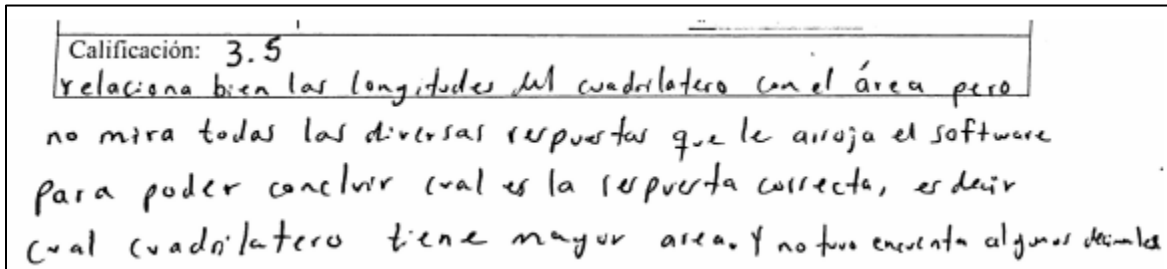 Calificación: 3.5
relaciona bien las longitudes del cuadrilatero con el área pero
no mira todas las diversas respuestas que le arroja el software
para poder concluir cual es la respuesta correcta, es decir
cual cuadrilatero tiene mayor area. Y no tuvo encuenta algunos decimales